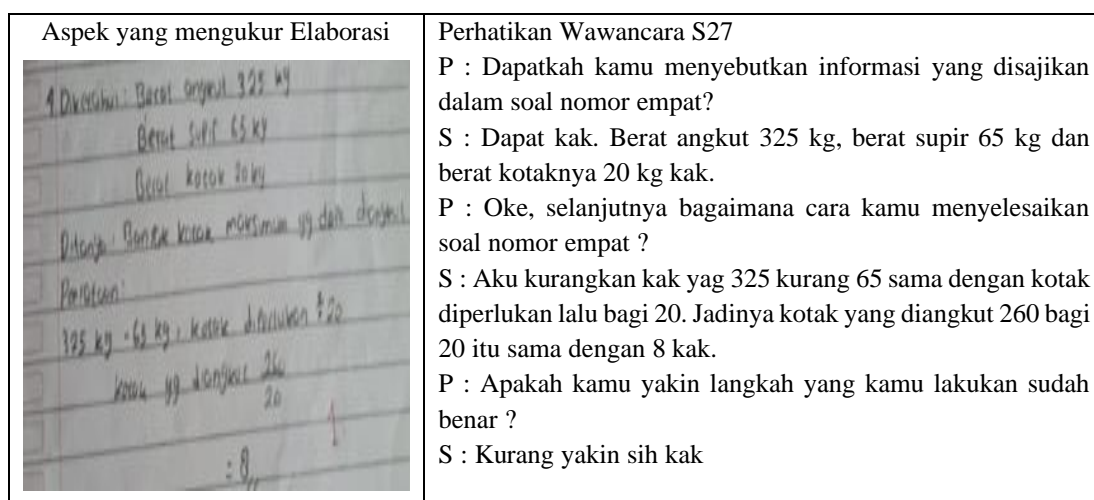 Aspek yang mengukur Elaborasi
4 Diketahui: Berat angkut 325 kg
Berat supir 65 kg
Berat kotak 20 kg
Ditanya: Banyak kotak maksimum yg dapat diangkut
325 kg - 65 kg = kotak diperlukan ÷ 20
kotak yg diangkut 260
20
1
= 8
Perhatikan Wawancara S27
P : Dapatkah kamu menyebutkan informasi yang disajikan
dalam soal nomor empat?
S : Dapat kak. Berat angkut 325 kg, berat supir 65 kg dan
berat kotaknya 20 kg kak.
P : Oke, selanjutnya bagaimana cara kamu menyelesaikan
soal nomor empat ?
S : Aku kurangkan kak yag 325 kurang 65 sama dengan kotak
diperlukan lalu bagi 20. Jadinya kotak yang diangkut 260 bagi
20 itu sama dengan 8 kak.
P : Apakah kamu yakin langkah yang kamu lakukan sudah
benar ?
S : Kurang yakin sih kak